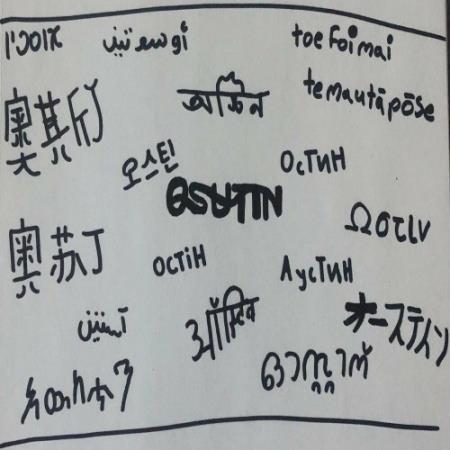 אוסטין
أوستين
toe foi mai
temautāpōse
奧斯汀
অস্টিন
오스틴
Остин
Ωστιν
奧苏丁
Остін
Аустин
آستین
ऑस्टिन
オースティン